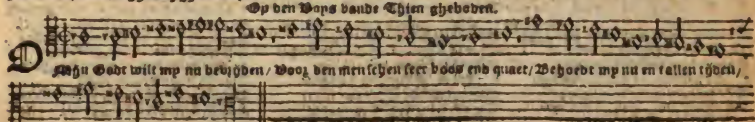 Op den Voys vande Thien gheboden.
O Mijn Godt wilt my nu bevrijden / Voor den menschen seer boos end quaet / Behoedt my nu en tallen tijden /